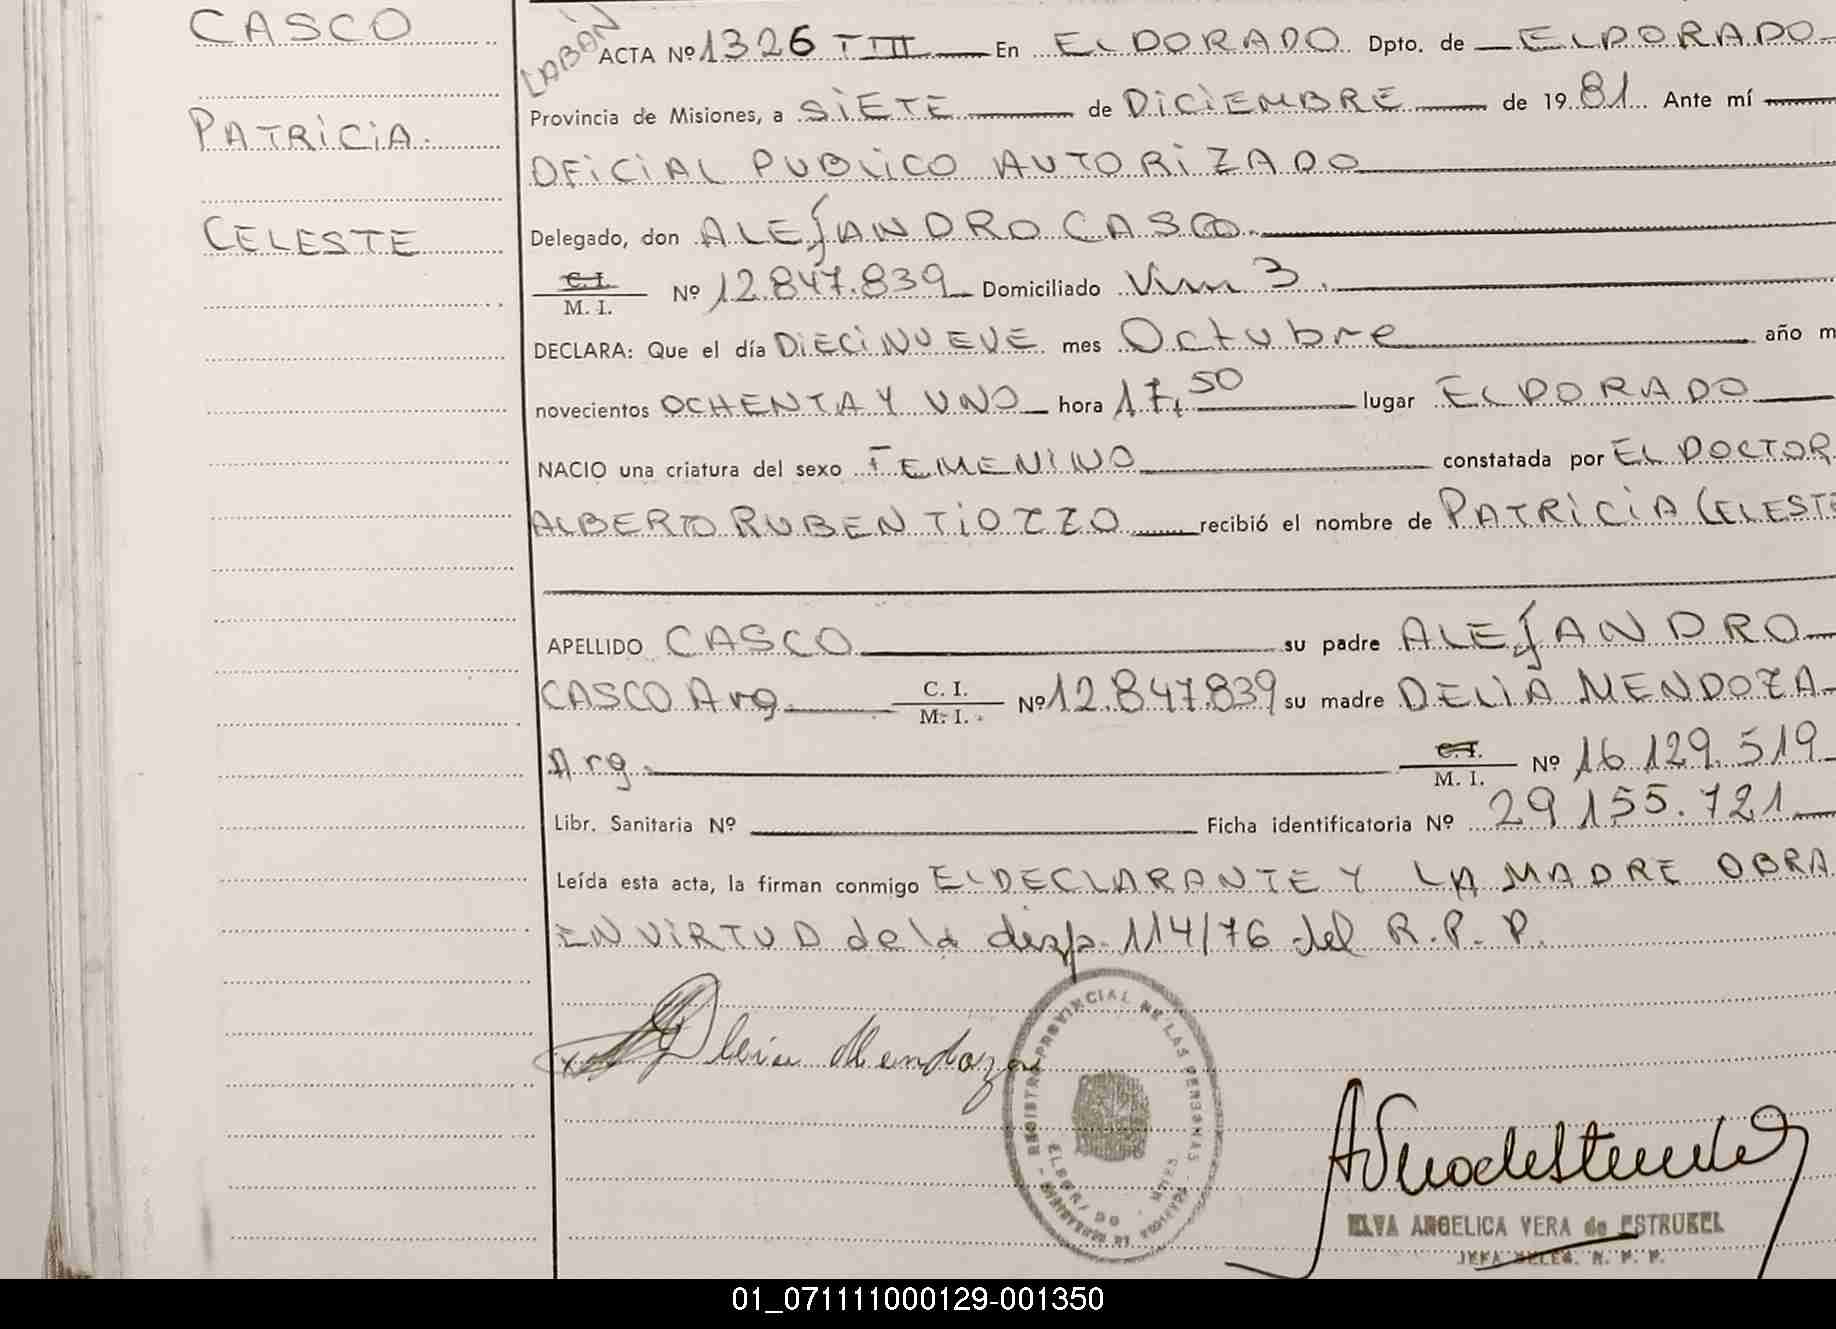 CASCO
PATRICIA.
CELESTE
LABÁN
ACTA Nº 1326 T III En ELDORADO Dpto. de ELDORADO
Provincia de Misiones, a SIETE de DICIEMBRE de 1981 Ante mí
OFICIAL PUBLICO AUTORIZADO
Delegado, don ALEJANDRO CASCO.
C. I.
M. I. Nº 12.847.839 Domiciliado Km 3.
DECLARA: Que el día DIECINUEVE mes Octubre año m
novecientos OCHENTA Y UNO hora 17,50 lugar ELDORADO
NACIO una criatura del sexo FEMENINO constatada por EL DOCTOR
ALBERTO RUBEN TIOZZO recibió el nombre de PATRICIA CELESTE
APELLIDO CASCO su padre ALEJANDRO
CASCO Arg. C. I. M. I. Nº 12.847.839 su madre DELIA MENDOZA
Arg. C. I. M. I. Nº 16.129.519
Libr. Sanitaria Nº Ficha identificatoria Nº 29.155.721
Leída esta acta, la firman conmigo EL DECLARANTE Y LA MADRE OBRA
EN VIRTUD de la disp. 114/76 del R. P. P.
Delia Mendoza
REGISTRO PROVINCIAL DE LAS PERSONAS
ELDORADO - MNES.
ELVA ANGELICA VERA de ESTRUBEL
JEFA DELEG. R. P. P.
01_071111000129-001350